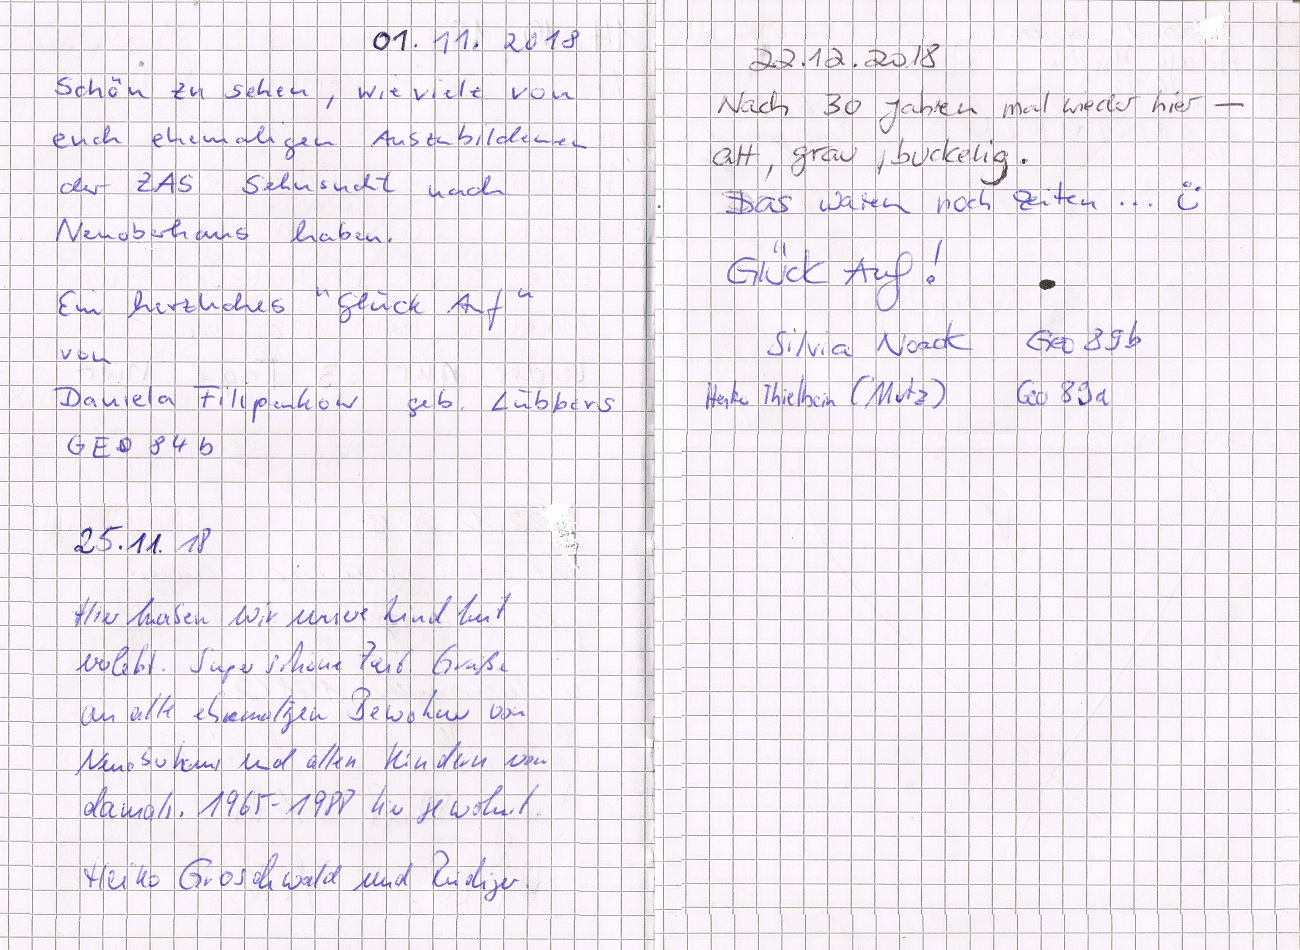 01. 11. 2018
Schön zu sehen, wie viele von
euch ehemaligen Auszubildenen
der ZAS Sehnsucht nach
Neuoberhaus haben.
Ein herzliches "Glück Auf"
von
Daniela Filipenkow geb. Lübbers
GEO 84b
25.11. 18
Hier haben wir unsere Kindheit
verlebt. Super schöne Zeit. Grüße
an alle ehemaligen Bewohner von
Neuoberhaus und allen Kindern von
damals. 1965-1988 hier gewohnt.
Heiko Groschwald und Rüdiger.
22.12.2018
Nach 30 Jahren mal wieder hier —
alt, grau, buckelig.
Das waren noch Zeiten ... Ü
Glück Auf!
Silvia Noack Geo 89b
Heike Thielbein (Mutz) Geo 89a